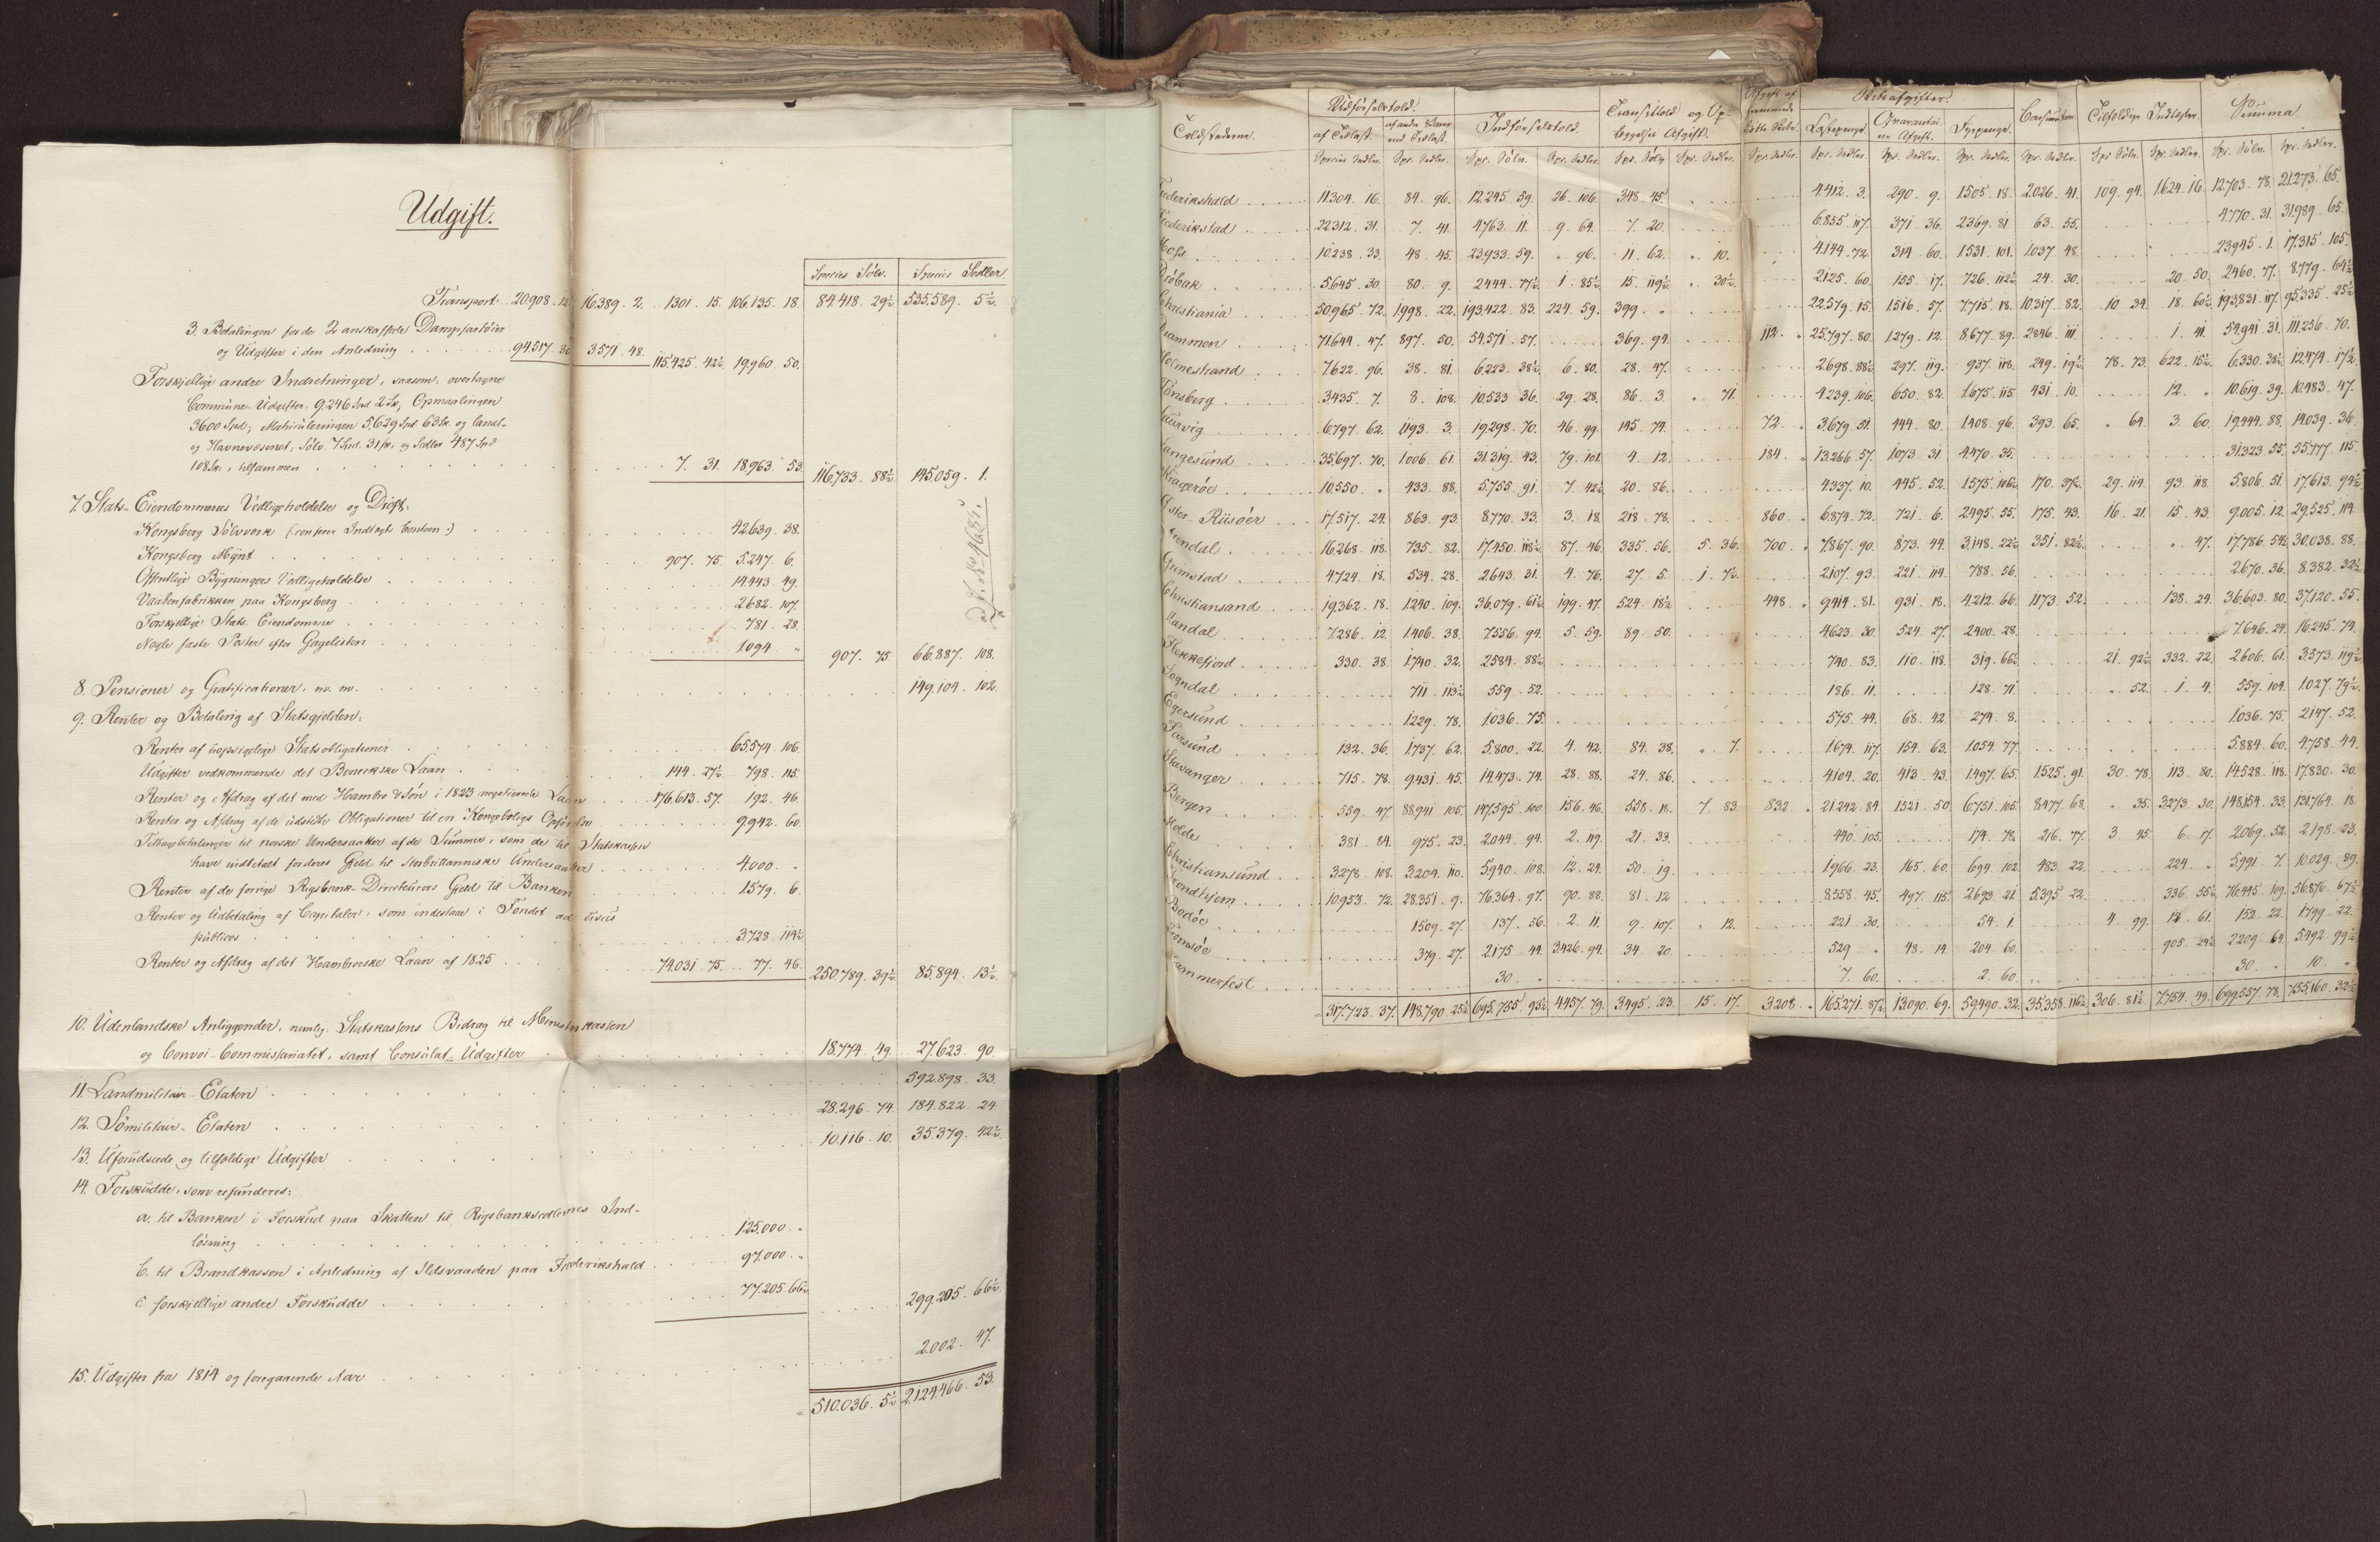 Udgift.
Species Sölv. Species Sedler.
Transport 20.908. 12 16.389. 2. 1301. 15. 106.135. 18 84.418. 29½. 535.589. 5½.
3. Betalingen for de 2 anskaffede Dampfartöier
og Udgifter i den Anledning 94.517. 30 3.571. 48.
115.425. 42½. 19.960. 50.
Forskjellige andre Indretninger, saasom: overtagne
Commüne-Udgifter 9.246 Spd. 2 Sk; Opmaalingen
3600 Spd; Matriculeringen 5,629 Spd. 63 Sk. og Canal-
og Havnevæsenet: Sölv. 7 Spd. 31 sk, og Sedler 487 Spd.
108 Sk., tilsammen 7. 31. 18,963. 53.
116,733. 88½. 145.059. 1.
7. Stats-Eiendommenes Vedligeholdelse og Drift:
Kongsberg Sölvværk (confeer Indtægts Contoen:) 42.639. 38.
Kongsberg Mÿnt 907. 75. 5.247. 6.
Offentlige Bÿgningers Vedligeholdelse 14.443. 49.
Vaabenfabrikken paa Kongsberg 2.682. 107.
Forskjellige Stats Eiendomme 781. 28.
Nogle faste Poster efter Gagelisten 1094 "
907. 75. 66.887. 108.
8. Pensioner og Gratificationer. m. m. 149.104. 102.
9. Renter og Betaling af Statsgjelden:
Renter af üopsigelige Statsobligationer 65.574. 106.
Udgifter vedkommende det Beneckske Laan 144. 27½. 798. 115.
Renter og Afdrag af det med Hambro & Sön i 1823 negotierede Laan 176.613. 57. 192. 46.
Renter og Afdrag af de üdstedte Obligationer til en Kongeboligs Opförelse 9.942. 60.
Tilbagebetalinger til norske Undersaatter af de Sümmer, som de til Statskassen
have indbetalt for deres Gjeld til storbrittanniske Undersaatter 4.000. "
Renter af de forrige Rigsbank-Directeurers Gjeld til Banken 1579. 6.
Renter og Udbetaling af Capitaler, som indestaae i Fondet ad üsüs
püblicos 3.728. 114½.
Renter og Afdrag af det Hambroeske Laan af 1825 74.031. 75. 77. 46.
250.789. 39½. 85.894. 13½.
10. Udenlandske Anliggender, nemlig: Statskassens Bidrag til Ministerkassen
og Convoi-Commissariatet, samt Consülat-Udgifter 18.774. 49. 27.623. 90.
11. Landmilitair-Etaten 592.898. 33.
12. Sömilitair-Etaten 28.296. 74. 184.822. 24.
13. Uforüdseede og tilfældige Udgifter 10.116. 10. 35.379. 42½.
14. Forsküdde, som refünderes:
a. til Banken i Forsküd paa Skatten til Rigsbanksedlernes Ind-
lösning 125.000. "
b. til Brandkassen i Anledning af Ildsvaaden paa Frederikshald 97.000. "
c. forskjellige andre Forsküdde 77.205. 66½.
299.205. 66½.
15. Udgifter fra 1814 og foregaaende Aar 2.002. 47.
510.036. 5½. 2.124.466. 53.
Toldstederne. Udförselstold. Indförselstold. Transittold og Op-
læggelses Afgift. Consümtion. Tilfældige Indtægter. Summa
af Trælast. Lastepenge. Fyrpenge.
Frederikshald 11.304. 16. 84. 96. 12.245. 59. 26. 106. 348. 45. 4.412. 3. 290. 9. 1505. 18. 2.026. 41. 109. 94. 1.624. 16. 12.703. 78. 21.273. 65.
Frederikstad 22.312. 31. 7. 41. 4.763. 11. 9. 64. 7. 20. 6.855. 117. 371. 36. 2.369. 81. 63. 55. 4.770. 31. 31.989. 65.
Moss 10.238. 33. 48. 45. 23.933. 59. " 96. 11. 62. " 10. 4.144. 72. 314. 60. 1.531. 101. 1.037. 48. 23.945. 1. 17.315. 105.
Dröbak 5.645. 30. 80. 9. 2.444. 77½. 1. 85½. 15. 119½. " 30½. 2.125. 60. 155. 17. 726. 112½. 24. 30. 20. 50. 2.460. 77. 8.779. 64½.
Christiania 50.965. 72. 1.998. 22. 193.422. 83. 224. 59. 399. " 22.579. 15. 1.516. 57. 7.715. 18. 10.317. 82. 10. 34. 18. 60½. 193.831. 117. 95.335. 25½.
Drammen 71.644. 47. 897. 50. 54.571. 57. 369. 94. 112. " 25.797. 80. 1.279. 12. 8.677. 89. 2.846. 111. 1. 41. 54.941. 31. 111.256. 70.
Holmestrand 7.622. 96. 38. 81. 6.223. 38½. 6. 80. 28. 47. 2.698. 88½. 297. 119. 937. 118. 249. 19½. 78. 73. 622. 15½. 6.330. 38½. 12.474. 17½.
Tönsberg 3.435. 7. 8. 108. 10.533. 36. 29. 28. 86. 3. " 71. 4.239. 106. 650. 82. 1.675. 115. 431. 10. 12. " 10.619. 39. 10.483. 47.
Laurvig 6.797. 62. 1193. 3. 19.298. 70. 46. 99. 145. 74. 72. " 3.679. 51. 444. 80. 1.408. 96. 393. 65. " 64. 3. 60. 19.444. 88. 14.039. 36.
Langesund 35.697. 70. 1.006. 61. 31.319. 43. 79. 101. 4. 12. 184. " 13.266. 57. 1.073. 31. 4.470. 35. 31.323. 55. 55.777. 115.
Krageröe 10.550. " 433. 88. 5.755. 91. 7. 42½. 20. 86. 4.337. 10. 445. 52. 1.575. 106½. 170. 37½. 29. 114. 93. 118. 5.806. 51. 17.613. 94½.
Öster-Riisöer 17.517. 24. 863. 93. 8.770. 33. 3. 18. 218. 78. 860. " 6.874. 72. 721. 6. 2.495. 55. 175. 43. 16. 21. 15. 43. 9.005. 12. 29.525. 114.
Arendal 16.268. 118. 735. 82. 17.450. 118½. 87. 46. 335. 56. 5. 36. 700. " 7.867. 90. 873. 44. 3.148. 22½. 351. 82½. " 47. 17.786. 54½. 30.038. 88.
Grimstad 4.724. 18. 534. 28. 2.643. 31. 4. 76. 27. 5. 1. 7½. 2.107. 93. 221. 114. 788. 56. 2.670. 36. 8.382. 32½.
Christiansand 19.362. 18. 1.240. 109. 36.079. 61½. 199. 47. 524. 18½. 448. " 9.414. 81. 931. 18. 4.212. 66. 1.173. 52. 138. 24. 36.603. 80. 37.120. 55.
Mandal 7.286. 12. 1.406. 38. 7.556. 94. 5. 59. 89. 50. 4.623. 30. 524. 27. 2.400. 28. 7.646. 24. 16.245. 74.
Flekkefjord 330. 38. 1.740. 32. 2.584. 88½. 740. 83. 110. 118. 319. 66½. 21. 92½. 332. 22. 2.606. 61. 3.573. 119½.
Sogndal 711. 113½. 559. 52. 186. 11. 128. 71. " 52. 1. 4. 559. 104. 1.027. 79½.
Egersund 1.229. 78. 1.036. 75. 575. 44. 68. 42. 274. 8. 1.036. 75. 2.147. 52.
Farsund 132. 36. 1.737. 62. 5.800. 22. 4. 42. 84. 38. " 7. 1.674. 117. 154. 63. 1.054. 77. 5.884. 60. 4.758. 44.
Stavanger 715. 78. 9.431. 45. 14.473. 74. 28. 88. 24. 86. 4.104. 20. 413. 43. 1.497. 65. 1.525. 91. 30. 78. 113. 80. 14.528. 118. 17.830. 30.
Bergen 559. 47. 88.941. 105. 147.595. 100. 156. 46. 558. 18. 7. 83. 832. " 21.242. 84. 1.521. 50. 6.751. 105. 8.477. 68. " 35. 3.273. 30. 148.154. 33. 131.764. 18.
Molde 381. 84. 975. 23. 2.044. 94. 2. 119. 21. 33. 440. 105. 174. 78. 216. 77. 3. 45. 6. 17. 2.069. 52. 2.198. 23.
Christiansund 3.278. 108. 3.204. 110. 5.940. 108. 12. 24. 50. 19. 1.966. 23. 165. 60. 694. 102. 483. 22. 224. " 5.991. 7. 10.029. 89.
Trondhjem 10.953. 72. 28.351. 9. 76.364. 97. 90. 88. 81. 12. 8.558. 45. 497. 115. 2.693. 21. 5.395. 22. 336. 55½. 76.445. 109. 56.876. 67½.
Bodöe 1.509. 27. 137. 36. 2. 11. 9. 107. " 12. 221. 30. 54. 1. 4. 99. 12. 61. 152. 22. 1.799. 22.
Tromsöe 379. 27. 2.175. 44. 3.426. 94. 34. 20. 529. " 48. 14. 204. 60. 905. 24½. 2.209. 64. 5.492. 99½.
Hammerfest 30. " 7. 60. 2. 60. 30. " 10. "
317.723. 37. 148.790. 25½. 695.755. 93½. 4.457. 79. 3.495. 23. 15. 17. 3.208. " 165.271. 87½. 13.090. 69. 59.490. 32. 35.358. 116½. 306. 81½. 7.754. 49. 699.557. 78. 755.160. 32½.